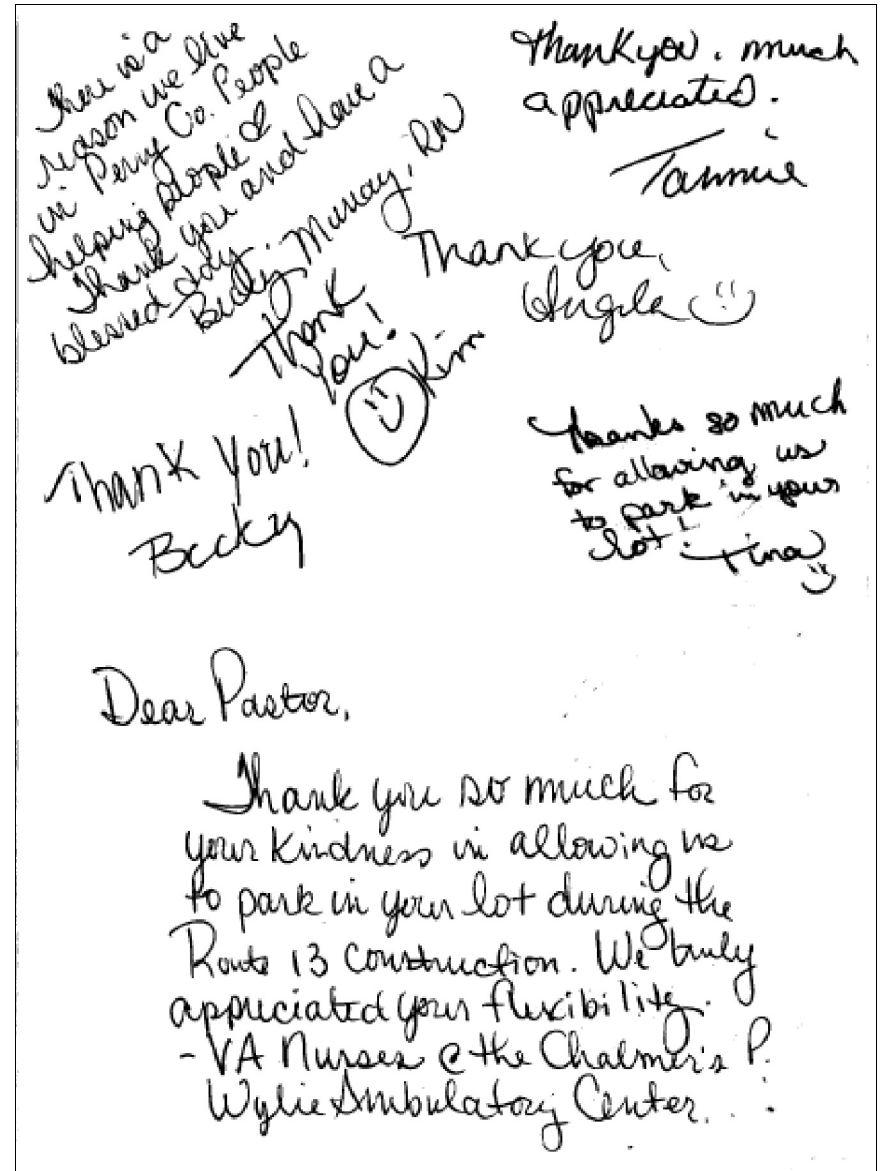 There is a
reason we live
in Perry Co. People
helping people
Thank you and have a
blessed day.
Becky Murray, RN
Thank you. much
appreciated.
Tammie
Thank you,
Angela
Thank
You!
Kim
Thank You!
Becky
Thanks so much
for allowing us
to park in your
lot!
-Tina
Dear Pastor,
Thank you so much for
your kindness in allowing us
to park in your lot during the
Route 13 construction. We truly
appreciated your flexibility.
- VA Nurses @ the Chalmer's P.
Wylie Ambulatory Center.